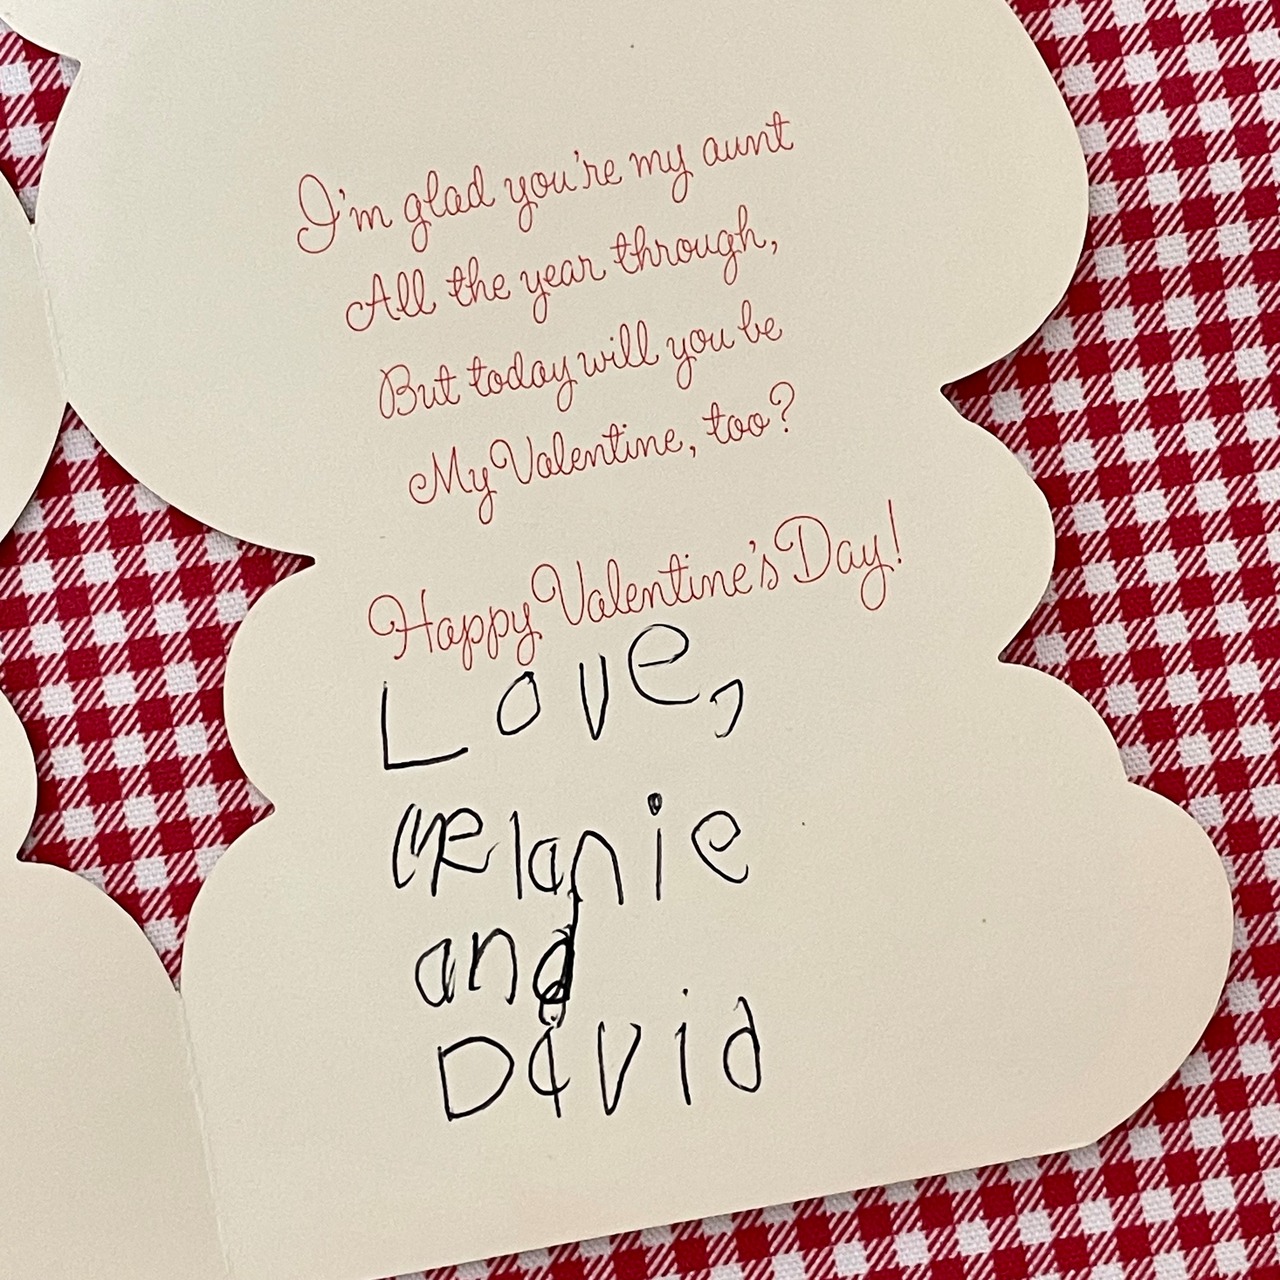 I'm glad you're my aunt
All the year through,
But today will you be
My Valentine, too?
Happy Valentine's Day!
Love,
Melanie
and
David